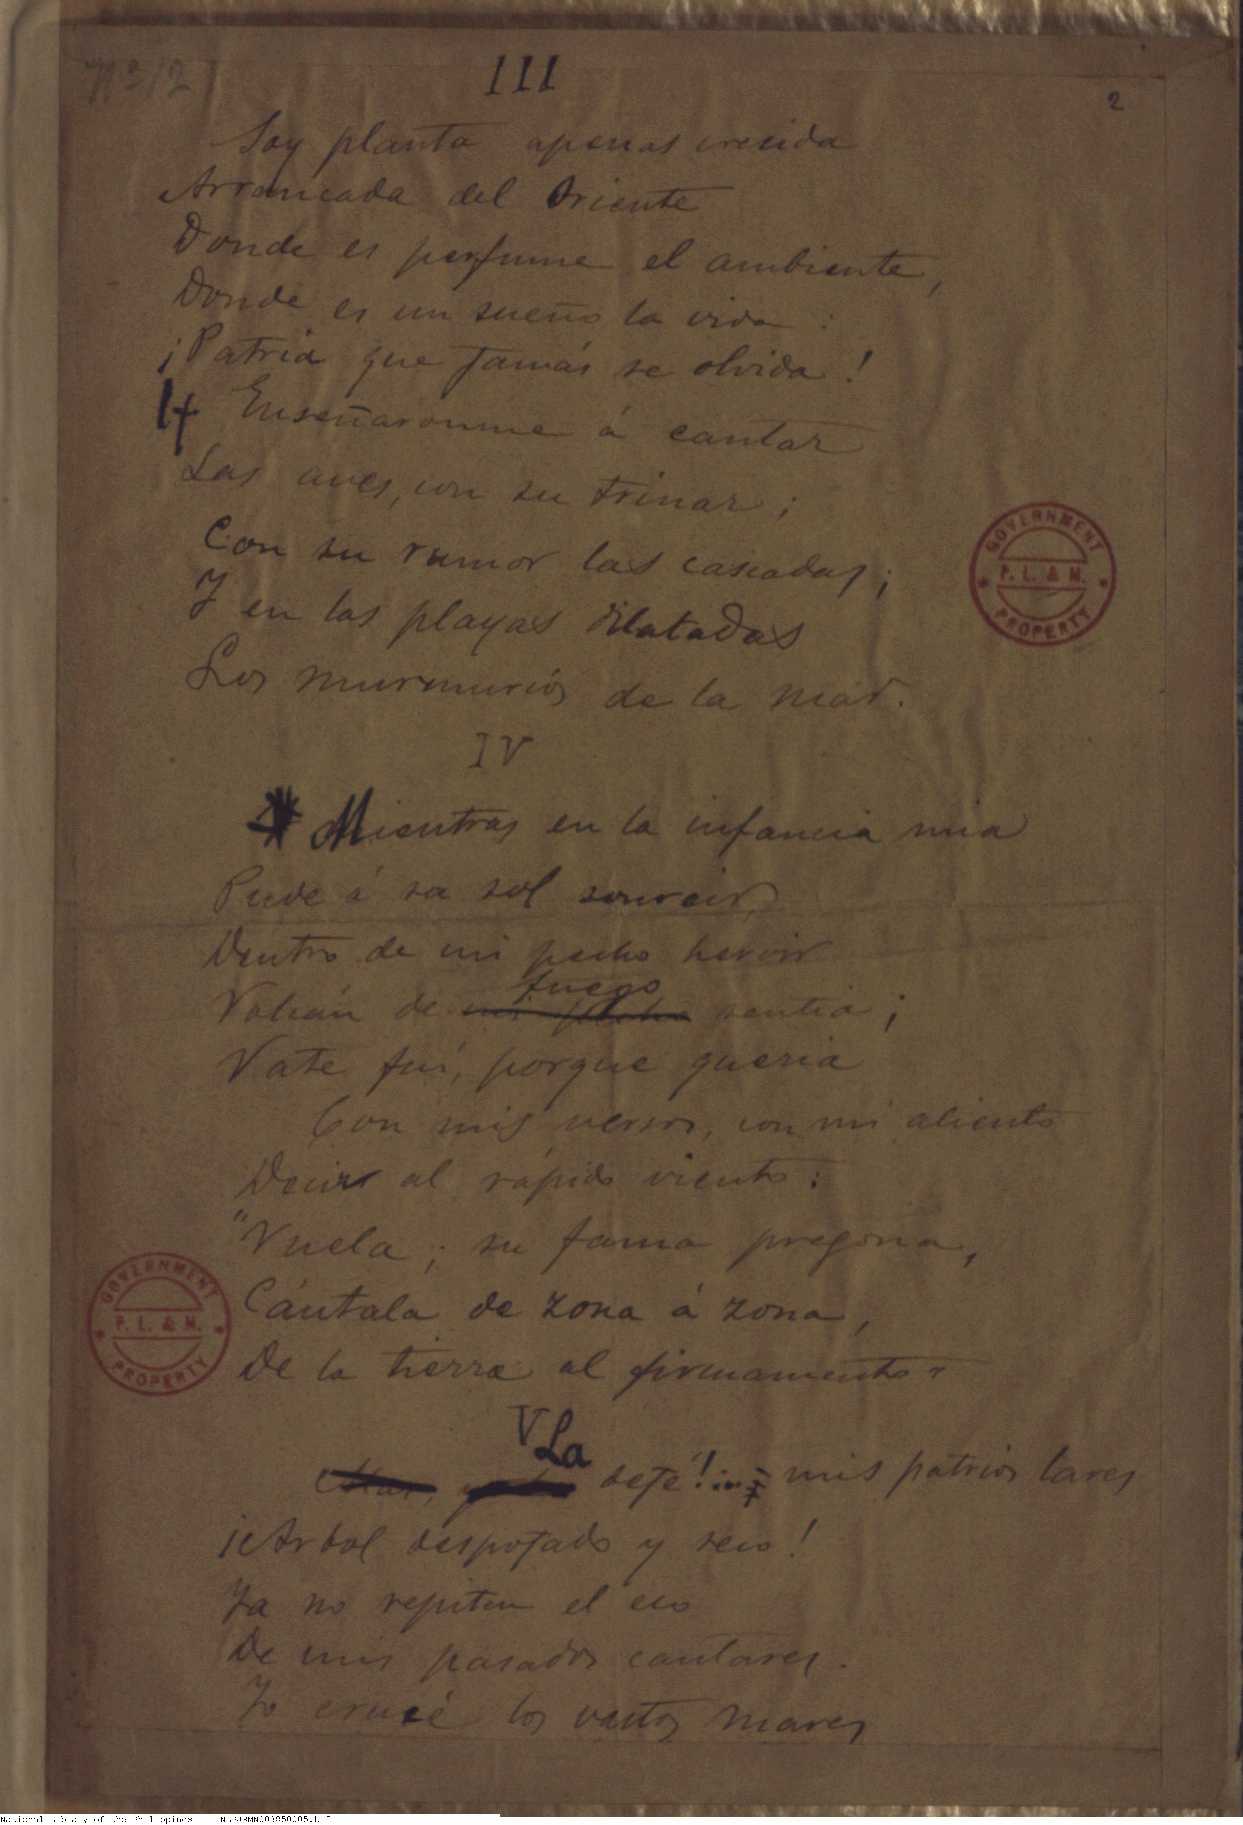 Nº 12
III
2
Soy planta apenas crecida
Arrancada del Oriente
Donde es perfume el ambiente,
Donde es un sueño la vida:
¡Patria que jamás se olvida!
Enseñaronme á cantar
Las aves, con su trinar;
Con su rumor las cascadas;
Y en las playas dilatadas
Los murmurios de la mar.
GOVERNMENT
P. L. & M.
PROPERTY
IV
Mientras en la infancia mia
Pude á su sol sonreir,
Dentro de mi pecho hervir
fuego
Volcán de mi pecho sentia;
Vate fuí, porque queria
Con mis versos, con mi aliento
Decir al rápido viento:
"Vuela; su fama pregona,
Cántala de zona á zona,
De la tierra al firmamento"
GOVERNMENT
P. L. & M.
PROPERTY
V
La
dejé! mis patrios lares
¡Arbol despojado y seco!
Ya no repiten el eco
De mis pasados cantares.
Yo crucé los vastos mares
National Library of the Philippines